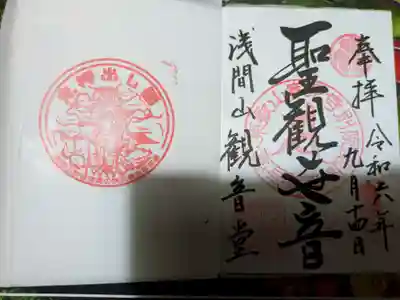 鬼押出し園
奉拝 令和六年
九月十四日
聖観世音
浅間山観音堂